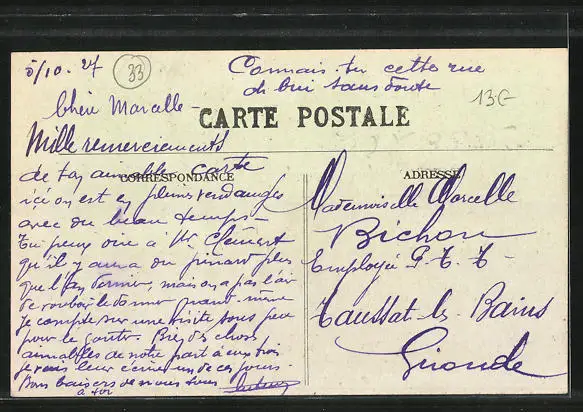 5/10. 27
33
Connais-tu cette rue
sans doute
13G
Chère Marcelle-
CARTE POSTALE
Mille remerciements
de ton aimable carte
CORRESPONDANCE
ADRESSE
ici on est en pleines vendanges
avec du beau temps-
Tu peux dire à Mr Clément
qu'il y aura du pinard plus
que l'an dernier, mais on a pas l'air
de vouloir le donner quand même
Je compte sur une visite sous peu
pour le gouter. Bien des choses
aimables de notre part à eux trois
je vais leur écrire un de ces jours.
Bons baisers de nous tous
à toi
Mademoiselle Marcelle
Bichon
Employée P. T. T.
Taussat-les-Bains
Gironde